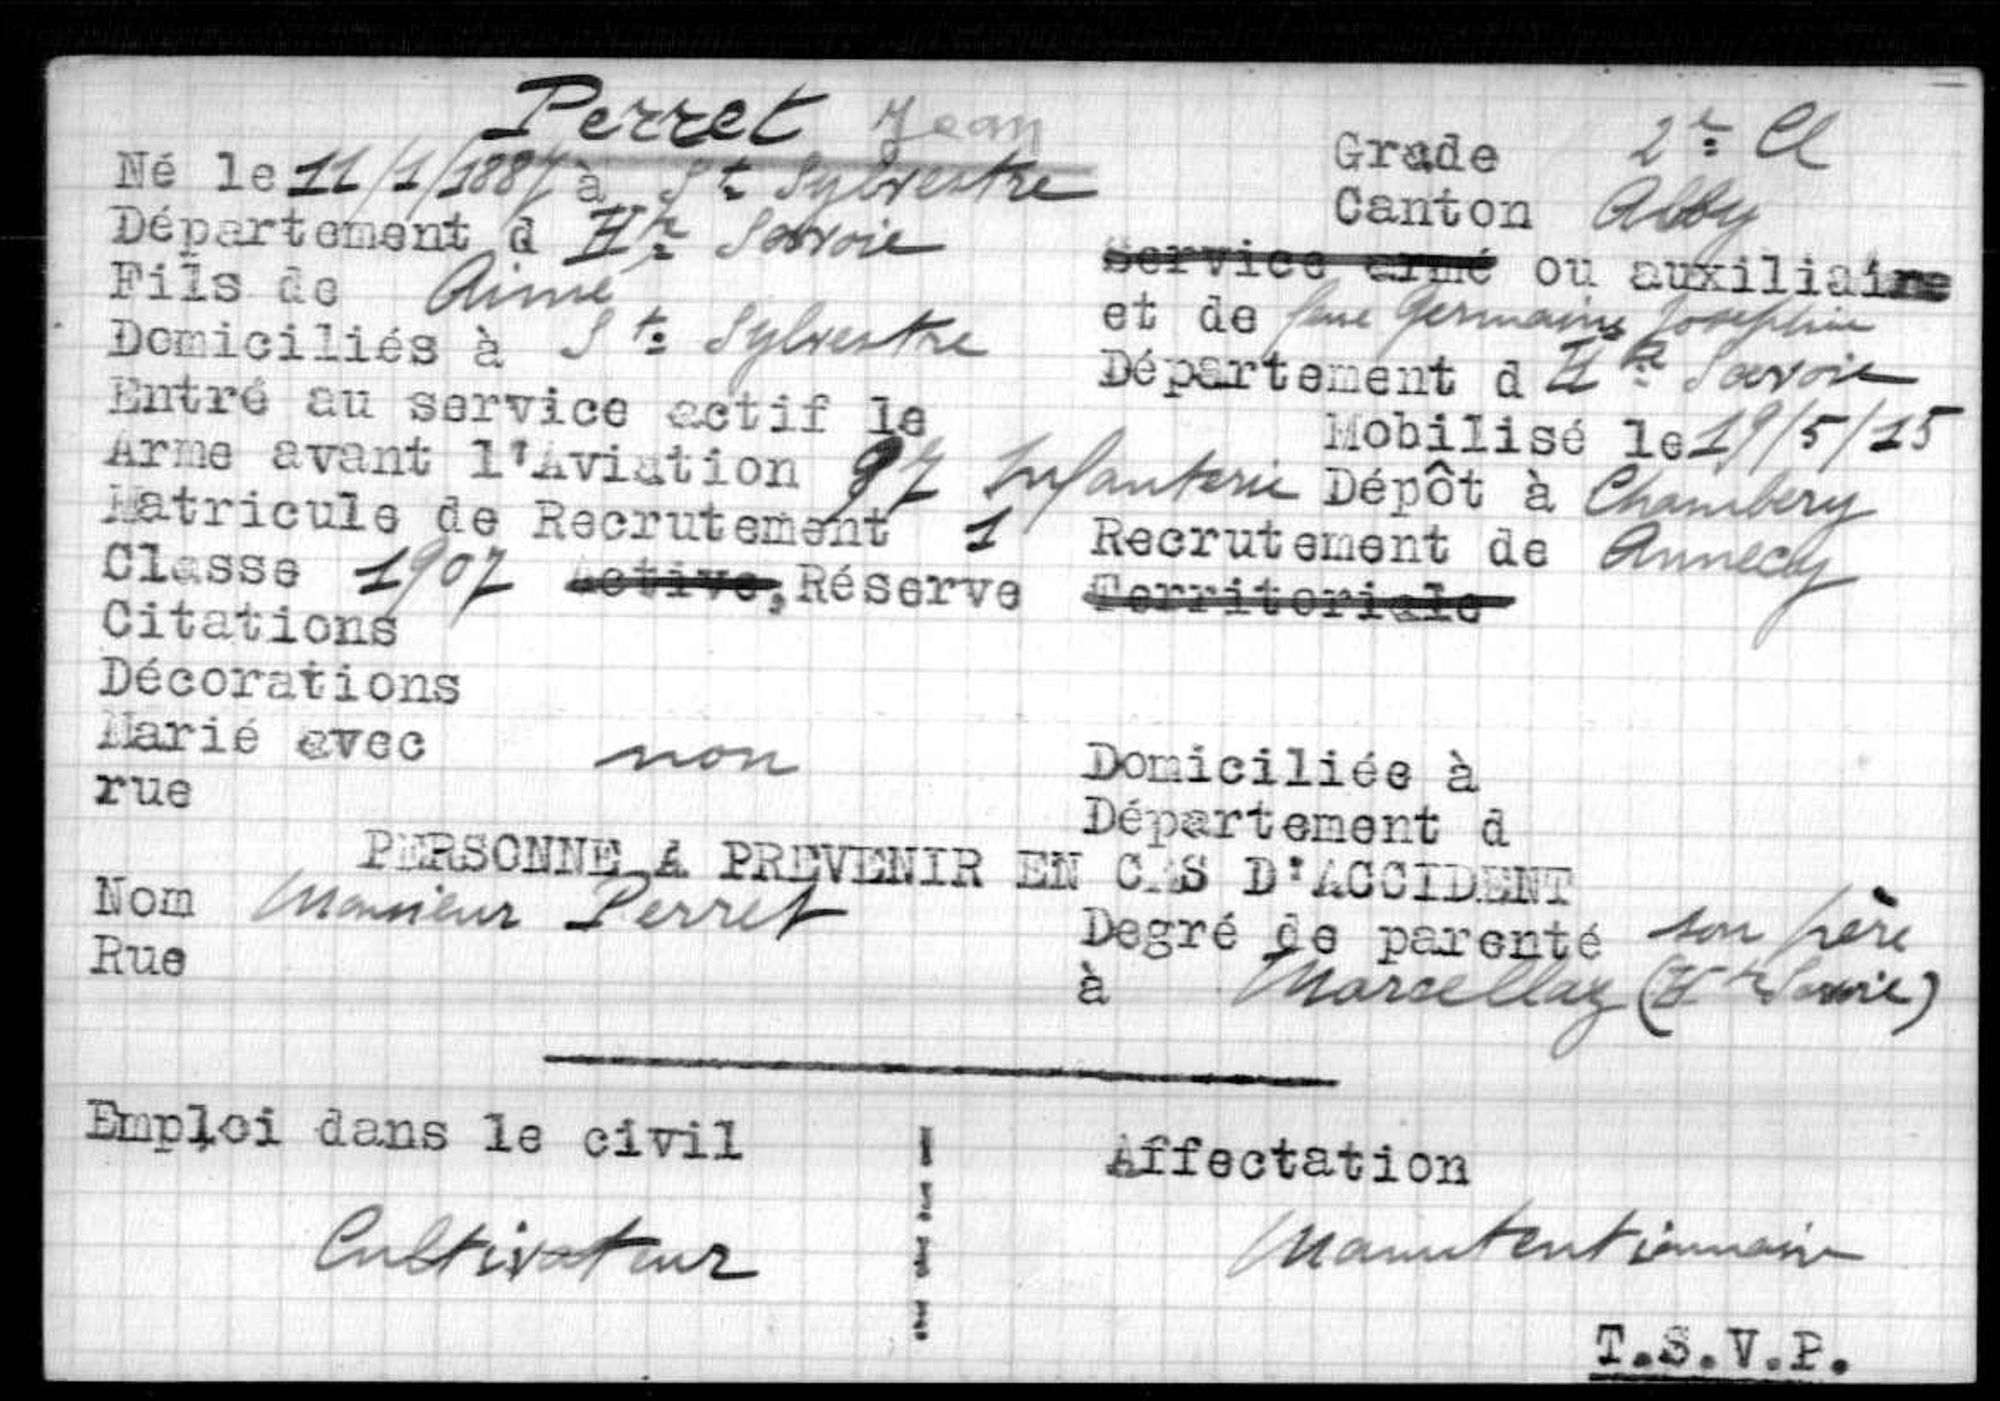 Perret Jean
Grade 2e Cl
Né le 11/1/1887 à St Sylvestre
Canton Alby
Département d Hte Savoie
Service armé ou auxiliaire
Fils de Aimé
et de feue Germain Josephine
Domiciliés à St Sylvestre
Département d Hte Savoie
Entré au service actif le
Mobilisé le 19/5/15
Arme avant l'Aviation 97 Infanterie Dépôt à Chambery
Matricule de Recrutement 1 Recrutement de Annecy
Classe 1907 Active, Réserve Territoriale
Citations
Décorations
Marié avec non
Domiciliée à
rue
Département d
PERSONNE A PREVENIR EN CAS D'ACCIDENT
Nom Monsieur Perret
Degré de parenté son père
Rue
à Marcellaz (Hte Savoie)
Emploi dans le civil
Affectation
Cultivateur
Manutentionnaire
T.S.V.P.